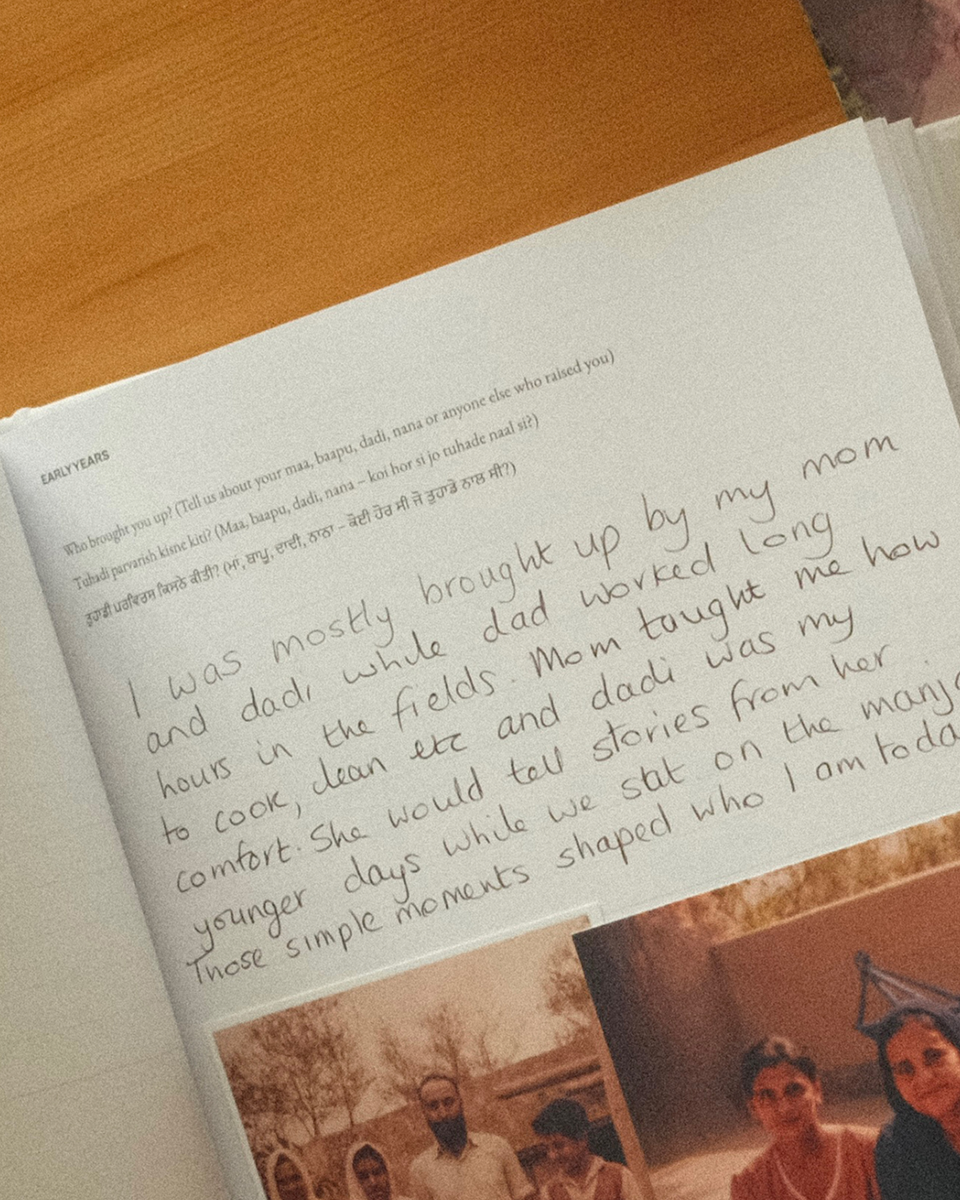 EARLY YEARS
Who brought you up? (Tell us about your maa, baapu, dadi, nana or anyone else who raised you)
Tuhadi parvarish kisne kiti? (Maa, baapu, dadi, nana – koi hor si jo tuhade naal si?)
ਤੁਹਾਡੀ ਪਰਵਰਿਸ਼ ਕਿਸਨੇ ਕੀਤੀ? (ਮਾਂ, ਬਾਪੂ, ਦਾਦੀ, ਨਾਨਾ – ਕੋਈ ਹੋਰ ਸੀ ਜੋ ਤੁਹਾਡੇ ਨਾਲ ਸੀ?)
I was mostly brought up by my mom
and dadi while dad worked long
hours in the fields. Mom taught me how
to cook, clean etc and dadi was my
comfort. She would tell stories from her
younger days while we sat on the
Those simple moments shaped who I am